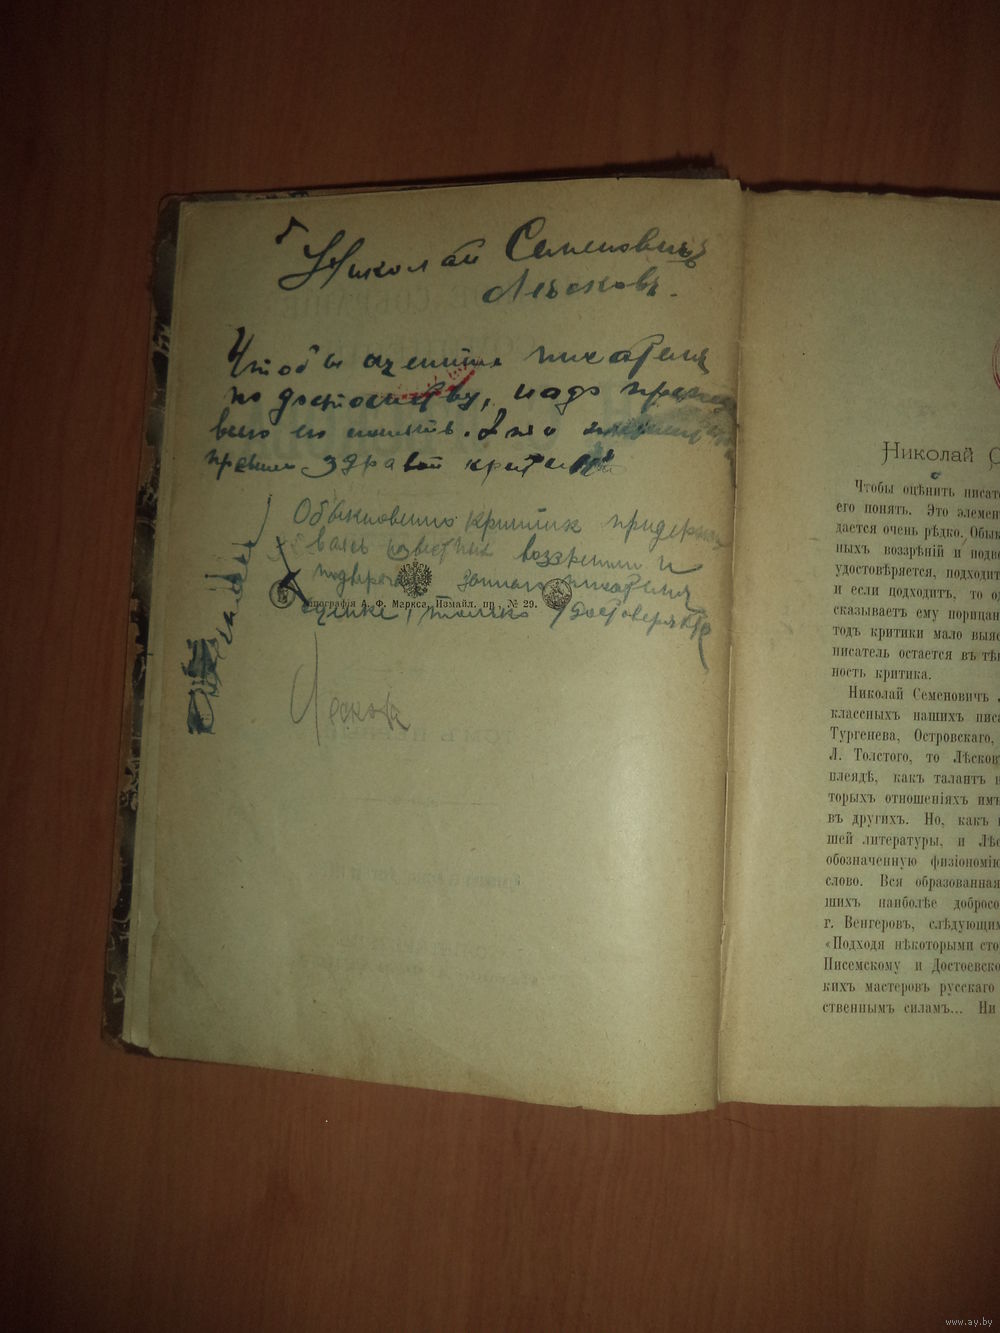 Николай Семеновичъ
Лѣсковъ.
Чтобы оценить писателя
по достоинству, надо прежде
всего его понять. Это
правило здравой критики
Обыкновенно критик придержи
ваясь известных воззрений и
подвергает данного писателя
оценке, только удостоверяется
Лескова
Типографія А. Ф. Маркса, Измайл. пр., № 29.
Николай С
Чтобы оцѣнить писат
его понять. Это элемен
дается очень рѣдко. Обык
ныхъ воззрѣній и подве
удостовѣряется, подходит
и если подходитъ, то од
сказываетъ ему порицан
тодъ критики мало выяс
писатель остается въ тѣ
ность критика.
Николай Семеновичъ Л
классныхъ нашихъ писа
Тургенева, Островскаго,
Л. Толстого, то Лѣсковъ
плеядѣ, какъ талантъ
торыхъ отношеніяхъ имъ
въ другихъ. Но, какъ
шей литературы, и Лѣс
обозначенную физіономію
слово. Вся образованная
шихъ наиболѣе добросо
г. Венгеровъ, слѣдующим
«Подходя нѣкоторыми сто
Писемскому и Достоевско
кихъ мастеровъ русскаго
ственнымъ силамъ... Ни
www.ay.by